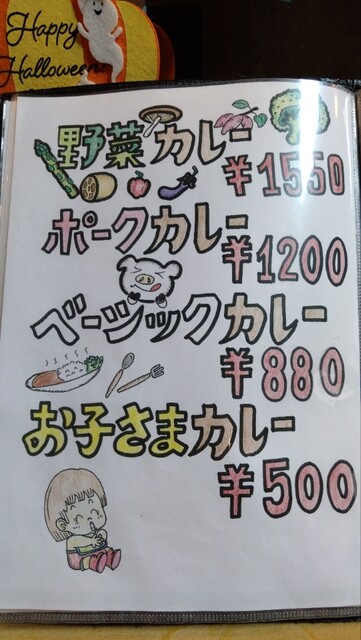 Happy
Halloween
野菜カレー
¥1550
ポークカレー
¥1200
ベーシックカレー
¥880
お子さまカレー
¥500